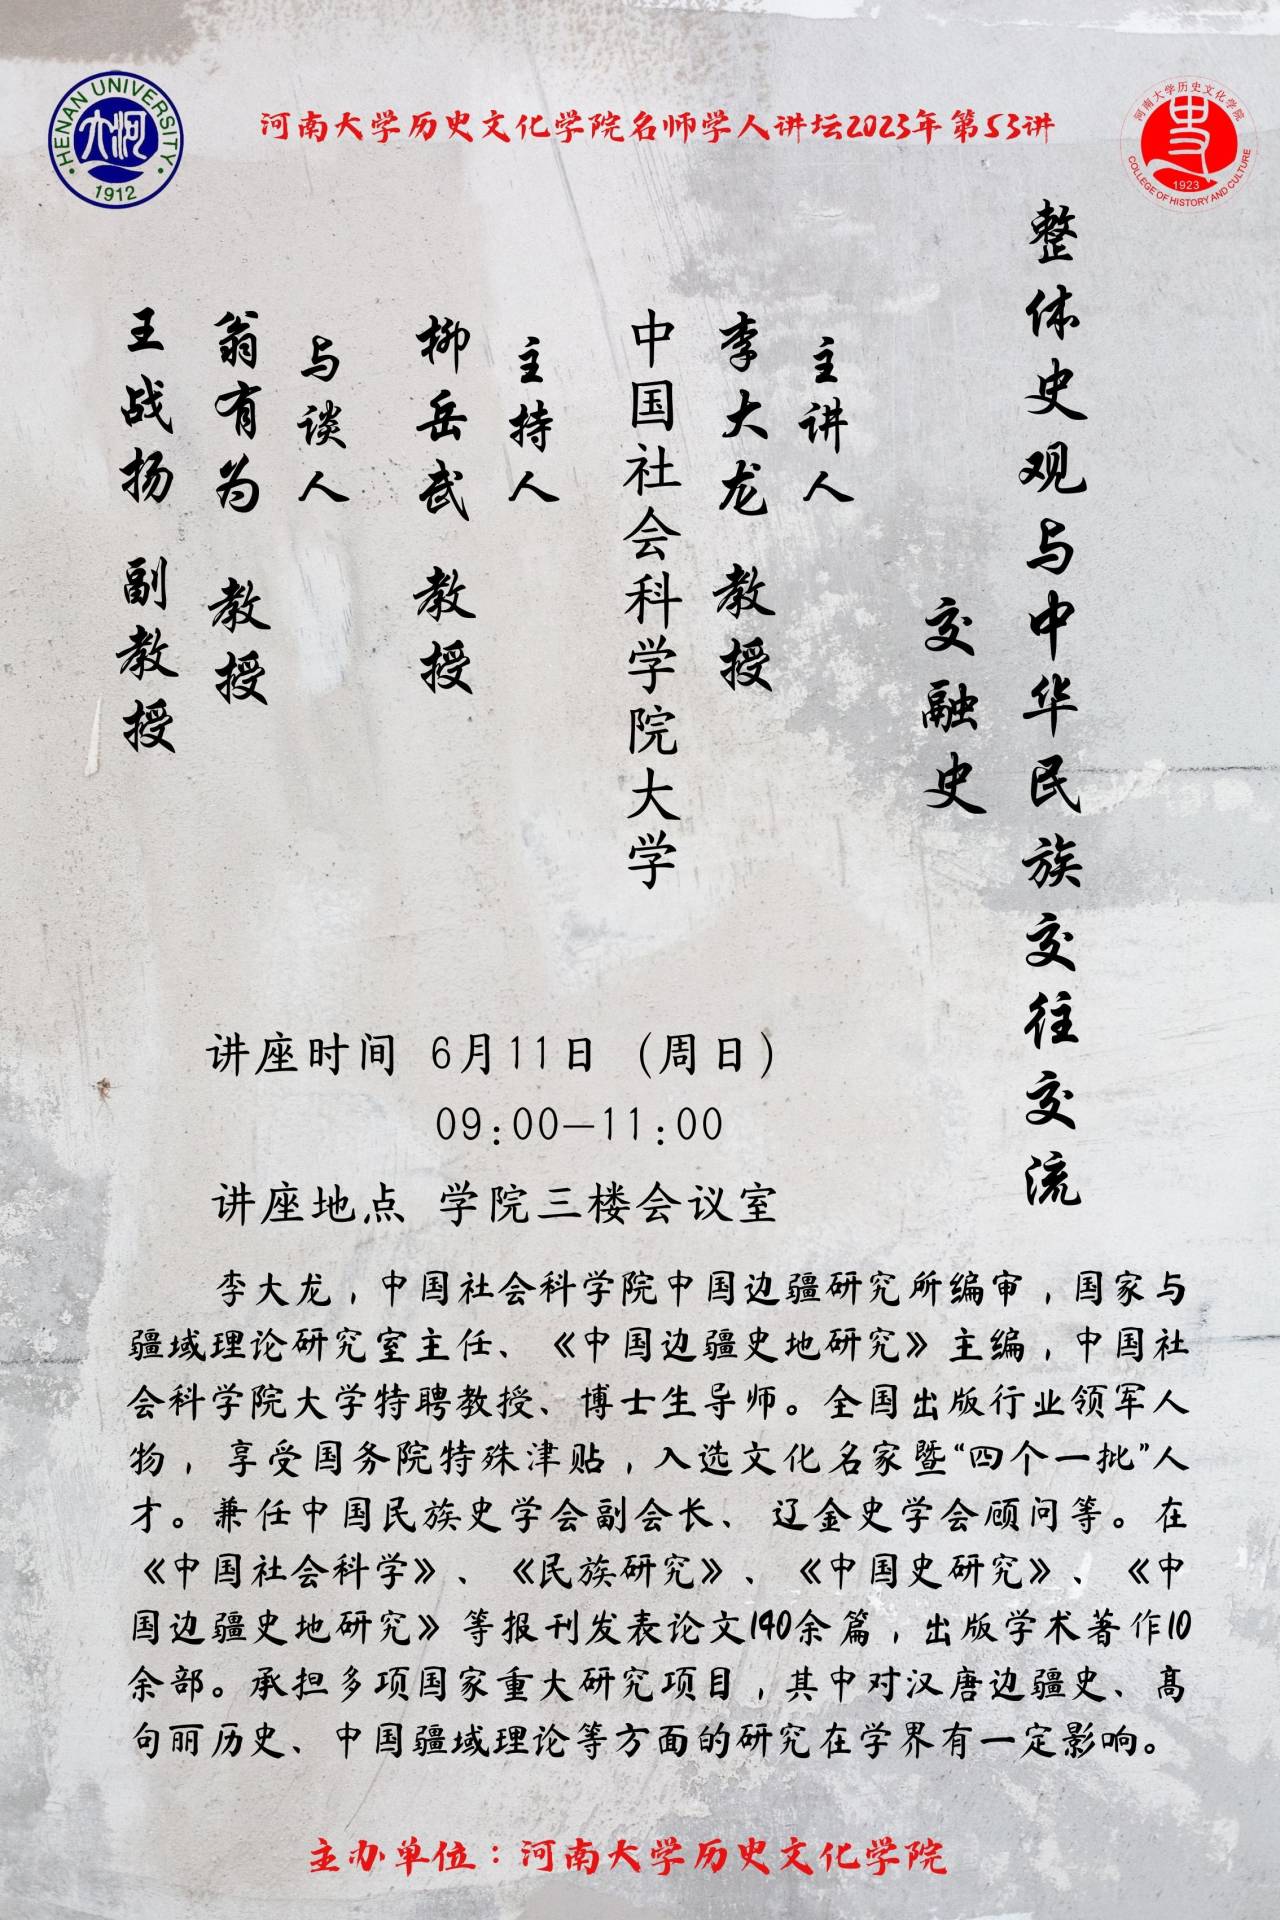 HENAN UNIVERSITY
大河
1912
河南大学历史文化学院名师学人讲坛2023年第53讲
河南大学历史文化学院
史
1923
COLLEGE OF HISTORY AND CULTURE
整体史观与中华民族交往交流
交融史
主讲人
李大龙 教授
中国社会科学院大学
主持人
柳岳武 教授
与谈人
翁有为 教授
王战扬 副教授
讲座时间 6月11日（周日）
09:00—11:00
讲座地点 学院三楼会议室
李大龙，中国社会科学院中国边疆研究所编审，国家与
疆域理论研究室主任、《中国边疆史地研究》主编，中国社
会科学院大学特聘教授、博士生导师。全国出版行业领军人
物，享受国务院特殊津贴，入选文化名家暨“四个一批”人
才。兼任中国民族史学会副会长、辽金史学会顾问等。在
《中国社会科学》、《民族研究》、《中国史研究》、《中
国边疆史地研究》等报刊发表论文140余篇，出版学术著作10
余部。承担多项国家重大研究项目，其中对汉唐边疆史、高
句丽历史、中国疆域理论等方面的研究在学界有一定影响。
主办单位：河南大学历史文化学院